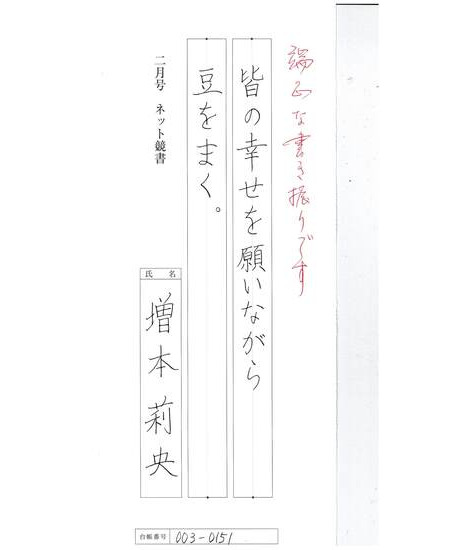 端正な書き振りです
皆の幸せを願いながら
豆をまく。
二月号 ネット競書
氏名
増本莉央
台帳番号 003-0151